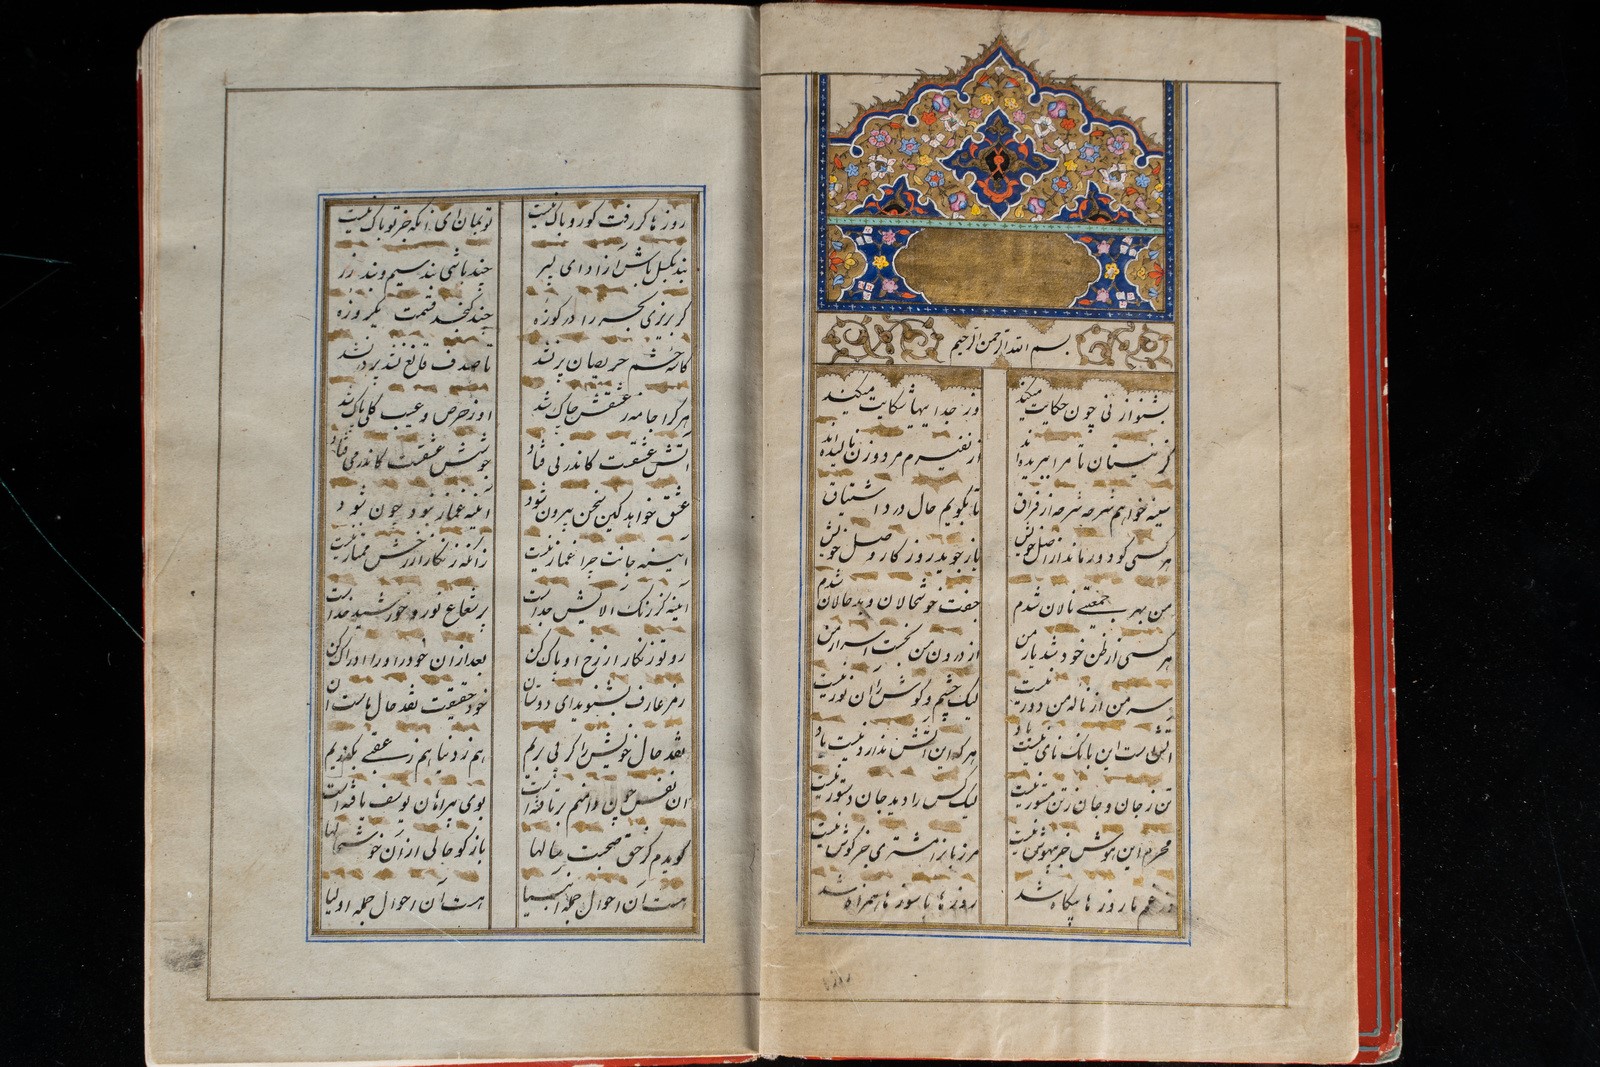 بسم الله الرحمن الرحیم
بشنو از نی چون حکایت میکند وز جداییها شکایت میکند
کز نیستان تا مرا ببریده‌اند از نفیرم مرد و زن نالیده‌اند
سینه خواهم شرحه شرحه از فراق تا بگویم حال درد اشتیاق
هر کسی کو دور ماند از اصل خویش باز جوید روزگار وصل خویش
من بهر جمعیتی نالان شدم جفت خوشحالان و بدحالان شدم
هر کسی از ظن خود شد یار من از درون من نجست اسرار من
سر من از ناله من دور نیست لیک چشم و گوش را آن نور نیست
آتش است این بانک نای نیست باد هر که این آتش ندارد نیست باد
تن ز جان و جان ز تن مستور نیست لیک کس را دید جان دستور نیست
محرم این هوش جز بیهوش نیست مر زبانرا مشتری جز گوش نیست
در غم ما روزها بیگاه شد روزها با سوزها همراه شد
روزها
روزها گر رفت گو رو باک نیست تو بمان ای آنکه جز تو پاک نیست
بند بگسل باش آزاد ای پسر چند باشی بند سیم و بند زر
گر بریزی بحر را در کوزه چند گنجد قسمت یکروزه
کاسه چشم حریصان پر نشد تا صدف قانع نشد پر در نشد
هر کرا جامه ز عشقش چاک شد او ز حرص و عیب کلی پاک شد
آتش عشقست کاندر نی فتاد جوشش عشقست کاندر می فتاد
عشق خواهد کین سخن بیرون شود آینه غماز نبود چون شود
آینه جانت چرا غماز نیست زانکه زنگار از رخش ممتاز نیست
آینه کز زنک آلایش جداست پر شعاع نور خورشید خداست
رو تو زنگار از رخ او پاک کن بعد ازان خود را ادراک کن
رمز عارف بشنوید ای دوستان خود حقیقت نقد حال ماست آن
نقد حال خویش را گر پی بریم هم ز دنیا هم ز عقبی بگذریم
این نفس جان دامنم برتافتست بوی پیراهان یوسف یافتست
گویدم کز حق صحبت سالها باز گو حالی از آن خوشحالها
هست آن احوال جمله انبیا هست آن احوال جمله اولیا